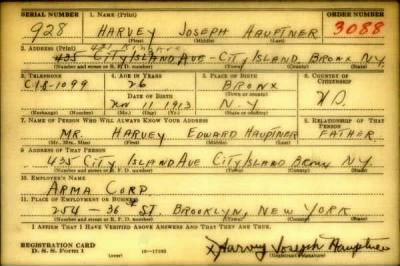 SERIAL NUMBER 1. NAME (Print) ORDER NUMBER
928 HARVEY JOSEPH HAUPTNER 3088
(First) (Middle) (Last)
2. ADDRESS (Print)
435 CITY ISLAND AVE - CITY ISLAND BRONX N.Y.
(Number and street or R. F. D. number) (Town) (County) (State)
3. TELEPHONE 4. AGE IN YEARS 5. PLACE OF BIRTH 6. COUNTRY OF CITIZENSHIP
CI 8-1099 26 BRONX
DATE OF BIRTH
Nov 11 1913 N.Y.
(Exchange) (Number) (Mo.) (Day) (Yr.) (State or country)
7. NAME OF PERSON WHO WILL ALWAYS KNOW YOUR ADDRESS 8. RELATIONSHIP OF THAT PERSON
MR. HARVEY EDWARD HAUPTNER FATHER
(Mr., Mrs., Miss) (First) (Middle) (Last)
9. ADDRESS OF THAT PERSON
435 CITY ISLAND AVE CITY ISLAND BRONX N.Y.
(Number and street or R. F. D. number) (Town) (County) (State)
10. EMPLOYER'S NAME
ARMA CORP.
11. PLACE OF EMPLOYMENT OR BUSINESS
254 - 36th ST. BROOKLYN, NEW YORK
(Number and street or R. F. D. number) (Town) (County) (State)
I AFFIRM THAT I HAVE VERIFIED ABOVE ANSWERS AND THAT THEY ARE TRUE.
REGISTRATION CARD
D. S. S. Form 1 (over) 16-17105 x Harvey Joseph Hauptner
(Registrant's signature)